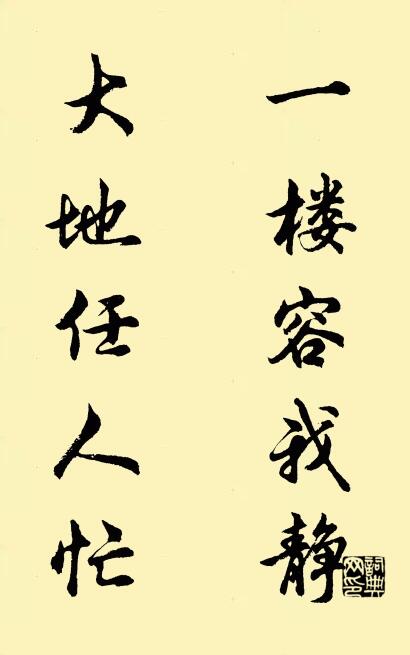 一楼容我静
大地任人忙
詞典网印